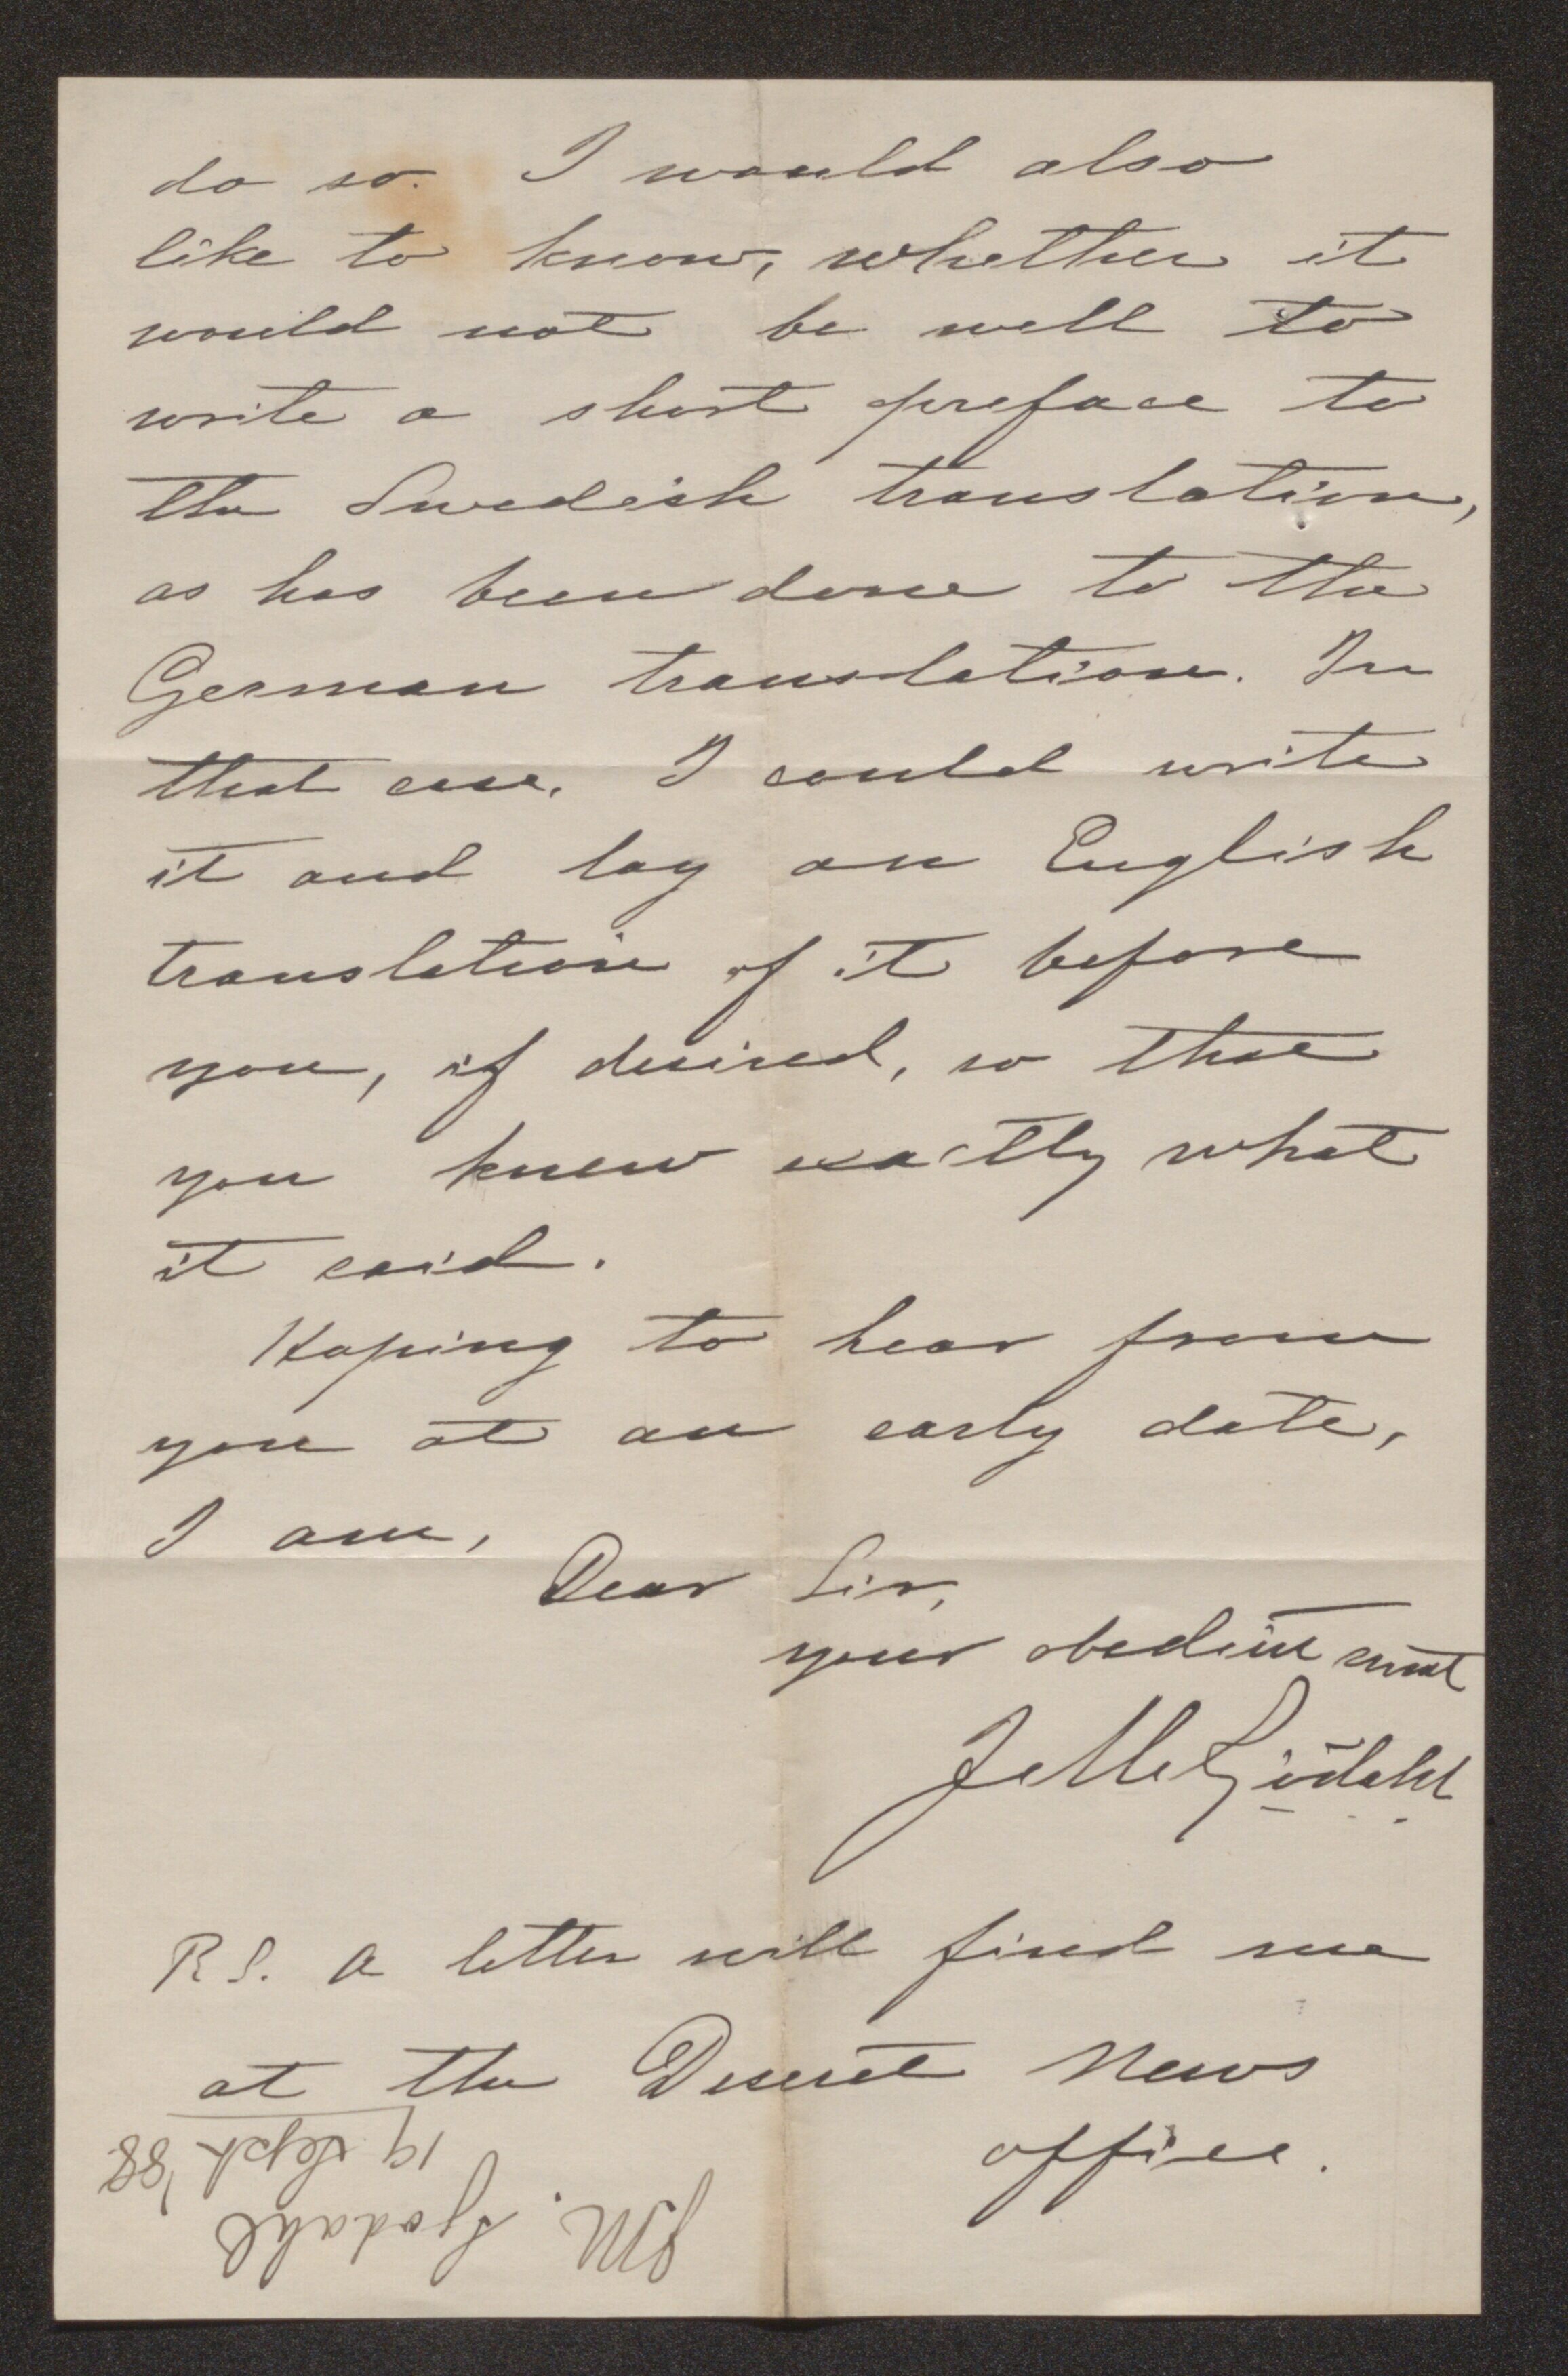 do so. I would also
like to know, whether it
would not be well to
write a short preface to
the Swedish translation,
as has been done to the
German translation. In
that case, I could write
it and lay an English
translation of it before
you, if desired, so that
you knew exactly what
it said.
Hoping to hear from
you at an early date,
I am,
Dear Sir,
your obedient servt
J. M. Sjödahl
P.S. A letter will find me
at the Deseret News
office.
J M. Sjodahl
19 Sept. '88